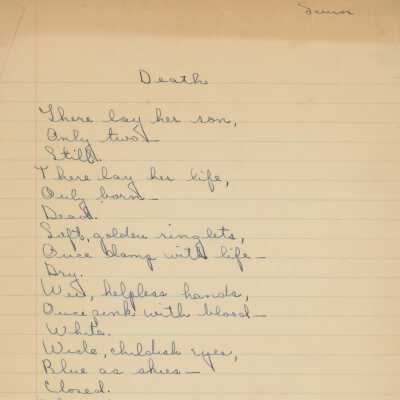 Senior
Death
There lay her son,
Only two—
Still.
There lay her life,
Only born—
Dead.
Soft, golden ringlets,
Once damp with life—
Dry.
Wee, helpless hands,
Once pink with blood—
White.
Wide, childish eyes,
Blue as skies—
Closed.